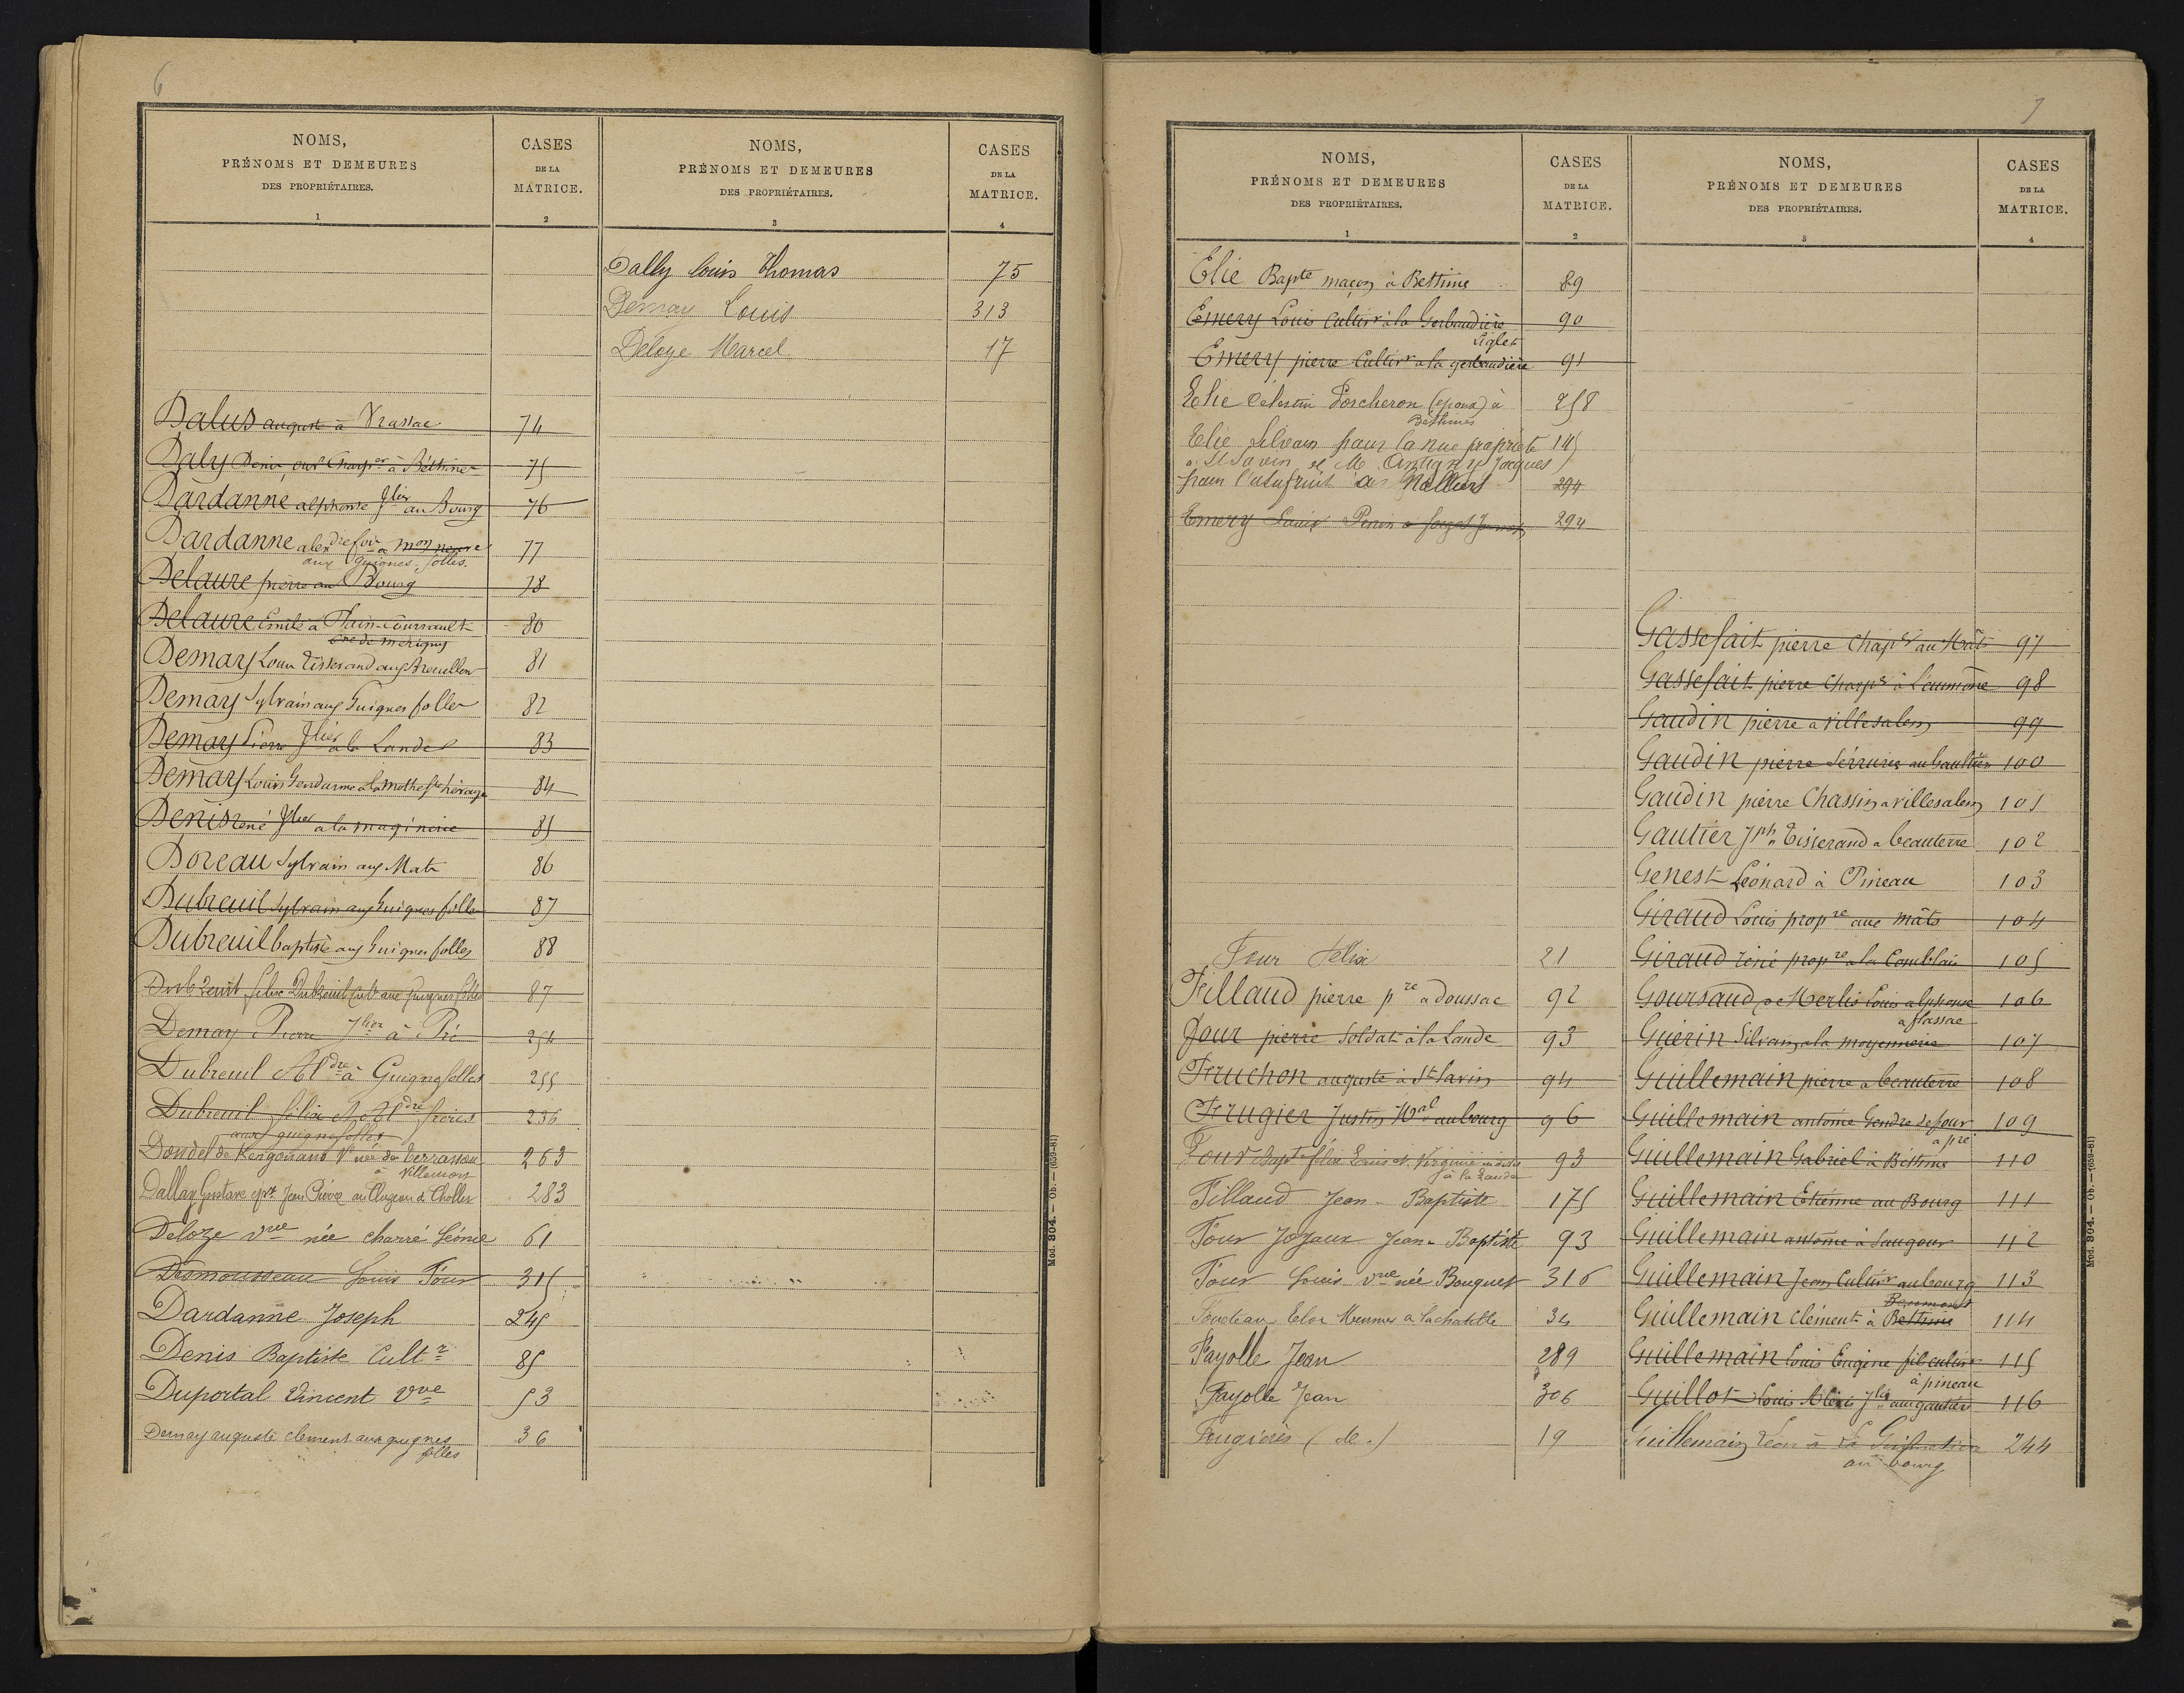 6
NOMS,
PRÉNOMS ET DEMEURES
DES PROPRIÉTAIRES.
1
CASES
DE LA
MATRICE.
2
NOMS,
PRÉNOMS ET DEMEURES
DES PROPRIÉTAIRES.
3
CASES
DE LA
MATRICE.
4
Dalus auguste à Vrassac 74
Daly Denis 75
Dardanne alphonse Jlier au Bourg 76
Dardanne alexdre 77
aux Guignes folles.
Delaure pierre au Bourg 78
Delaure Emile à Plain-Courrault 80
Cne de Mérigny
Demay Louis Tisserand aux 81
Demay Sylvain aux Guignes folles 82
Demay Pierre Jlier à la Lande 83
Demay Louis Gendarme à la mothe Ste héraye 84
Denis réné Jlier a la maginerie 85
Doreau Sylvain aux Mats 86
Dubreuil Sylvain aux Guignes folles 87
Dubreuil baptiste aux Guignes folles 88
Dubreuil Cult aux Guignes folles 87
Demay Pierre Jlier à Pré 254
Dubreuil Aldre à Guignefolles 255
Dubreuil félix et Aldre frères 256
aux guignefolles
Dondel de Kergonano Ve née de Terrasson 263
à Villemort
Dallay Gustave Jean Pierre 283
Deloze vve née charré Léonie 61
Desmousseau Louis Four 315
Dardanne Joseph 245
Denis Baptiste Cultr 85
Duportal Vincent Vve 53
Demay auguste clement aux guignes 36
folles
Dally Louis Thomas 75
Demay Louis 313
Deloze Marcel 17
Mod. 304. — Ob. — (659-81)
7
NOMS,
PRÉNOMS ET DEMEURES
DES PROPRIÉTAIRES.
1
CASES
DE LA
MATRICE.
2
NOMS,
PRÉNOMS ET DEMEURES
DES PROPRIÉTAIRES.
3
CASES
DE LA
MATRICE.
4
Elie Bapte maçon à Bethine 89
Emery Louis Cultivr à la Gerbaudière 90
Liglet
Emery pierre Cultivr a la gerbaudière 91
Elie Célestin Porcheron (époux) à 258
Béthines
Elie Silvain pour la nue propriété 145
a St Savin et M. Antigny Jacques
pour l'usufruit à Nalliers 294
Emery Louis 294
Four Félix 21
Fillaud pierre pre a doussac 92
Four pierre Soldat à la Lande 93
Fruchon auguste à St Savin 94
Frugier Justin Mal au bourg 96
Four Bapte félix Louis et Virginie 93
à la Lande
Fillaud Jean-Baptiste 175
Four Joyaux Jean-Baptiste 93
Four Louis vve née Bouquet 316
34
Fayolle Jean 289
Fayolle Jean 306
Fougières (de.) 19
Gassefait pierre Charpr au Mâts 97
Gassefait pierre Charpr à L'aumône 98
Gaudin pierre a villesalem 99
Gaudin pierre Serrurier au Gaultier 100
Gaudin pierre Chassin a villesalem 101
Gautier Jph Tisserand a beauterre 102
Genest Léonard à Pineau 103
Giraud Louis propre aux mâts 104
Giraud réné propre a la Comblais 105
Goursaud de Merlis Louis alphonse 106
a flassac
Guérin Silvain a la moyennerie 107
Guillemain pierre a beauterre 108
Guillemain antoine Gendre Dufour 109
a pré
Guillemain Gabriel à Béthine 110
Guillemain Etienne au Bourg 111
Guillemain antoine à Saugour 112
Guillemain Jean Cultivr au bourg 113
Beaumont
Guillemain Clément à Bethine 114
Guillemain Louis Eugène fils cultivr 115
à pineau
Guillot Louis Alexis Jlier aux gautiers 116
Guillemain Léon à 244
au bourg
Mod. 304. — Ob. — (659-81)